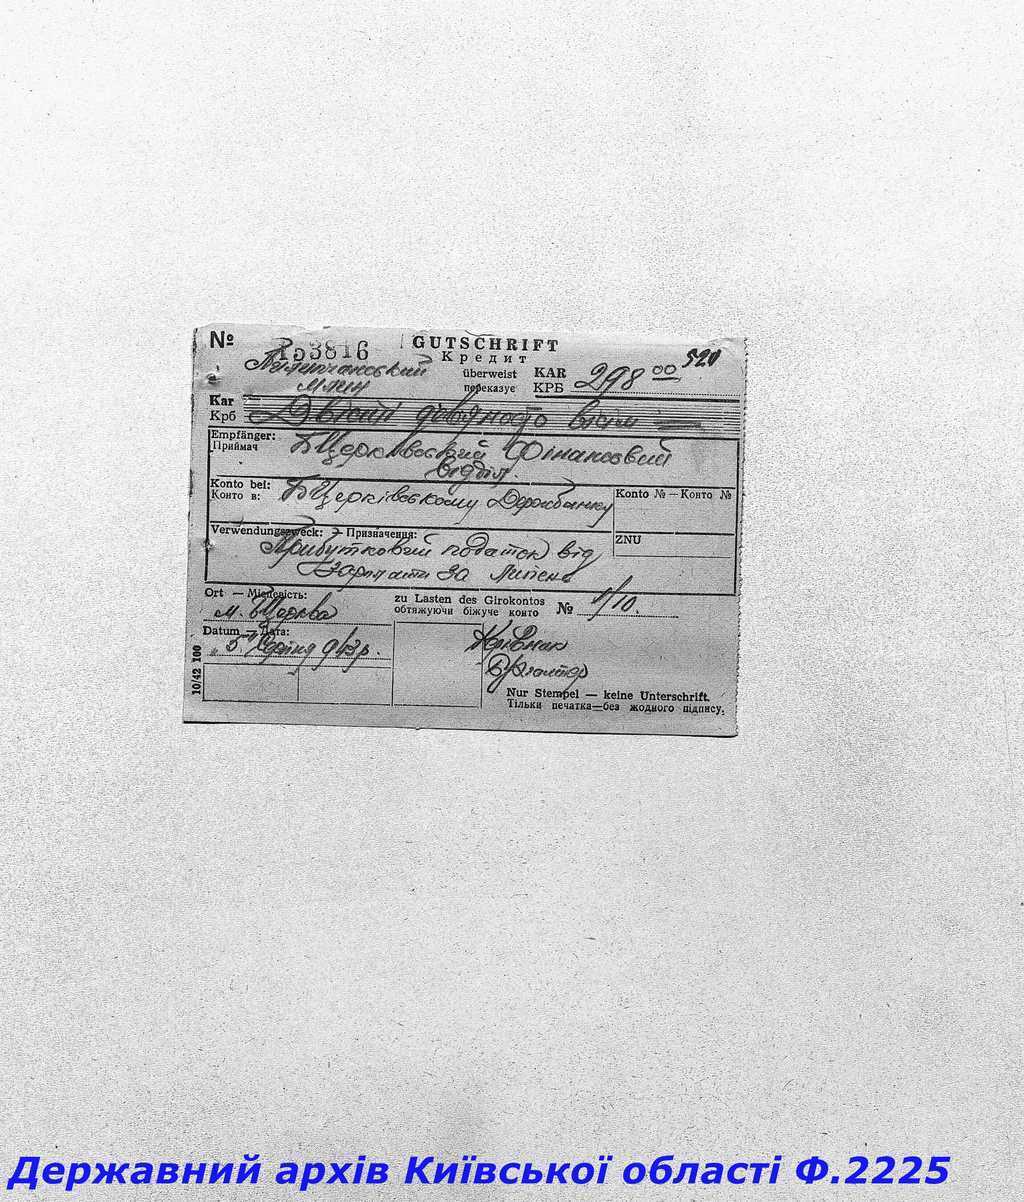 № 153816 GUTSCHRIFT 520
Кредит
млин überweist KAR 298 00
переказує КРБ
Kar
Крб Двісті дев'яносто вісім
Empfänger: БЦерковський Фінансовий
Приймач відділ.
Konto bei: БЦерківському Держбанку Konto № — Конто №
Конто в:
Verwendungszweck: — Призначення: ZNU
Прибутковий податок від
Зарплати за липень
Ort — Місцевість: zu Lasten des Girokontos
м. БЦерква обтяжуючи біжуче конто № 1/10.
Datum — Дата:
"5" Серпня 943р.
Керівник
Бухгалтер
10/42 100
Nur Stempel — keine Unterschrift.
Тільки печатка—без жодного підпису.
Державний архів Київської області Ф.2225